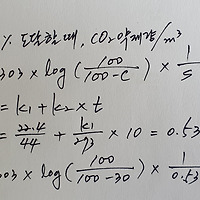 % 도달할 때, CO₂ 약제량/m³
303 × log(100/100-C) × 1/S
= k₁ + k₂ × t
= 22.4/44 + k₁/273 × 10 = 0.53
303 × log(100/100-30) × 1/0.53